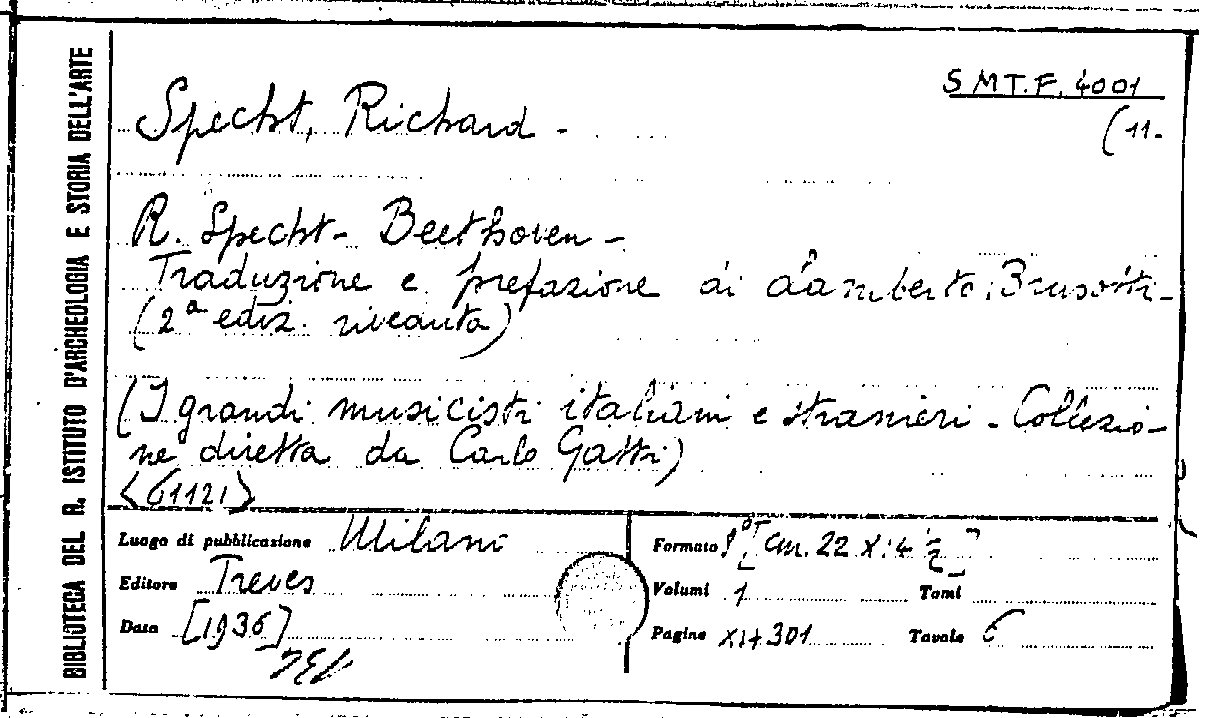 BIBLIOTECA DEL R. ISTITUTO D'ARCHEOLOGIA E STORIA DELL'ARTE
S M T. F. 4001
(11-
Specht, Richard -
R. Specht - Beethoven -
Traduzione e prefazione di Lamberto Brusotti -
(2ª ediz. riveduta)
(I grandi musicisti italiani e stranieri - Collezio-
ne diretta da Carlo Gatti)
<61121>
Luogo di pubblicazione Milano
Formato 8° [cm. 22 x 14 ½]
Editore Treves
Volumi 1 Tomi
Data [1936]
Pagine XI+301 Tavole 6